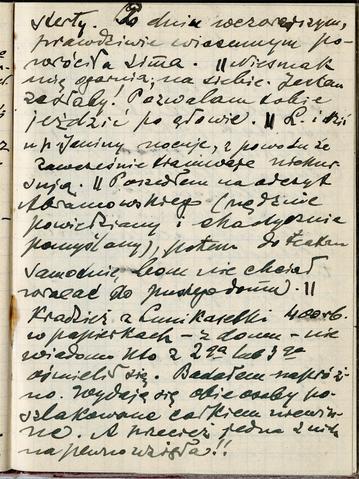 sterty. Po dniu wczorajszym,
prawdziwie wiosennym po-
wróciła zima. || Niesmak
mię ogarnia, na siebie. Jestem
za słaby! Pozwalam sobie
jeździć po głowie. || L. i dziś
u p. Janiny nocuje, z powodu że
zawcześnie tramwaje
|| Poszedłem na odczyt
Abramowskiego (nędznie
powiedziany i chaotycznie
pomyślany), potem do teatru
samotnie bom nie chciał
wracać do pustego domu. ||
Kradzież z 400 rb.
w papierkach – z domu – nie
wiadomo kto z 2ga lub 3ga
ośmielił się. Badałem napróż-
no. Wydają się obie osoby po-
szlakowane całkiem niewin-
ne. A przecież jedna z nich
na pewno wzięła!!